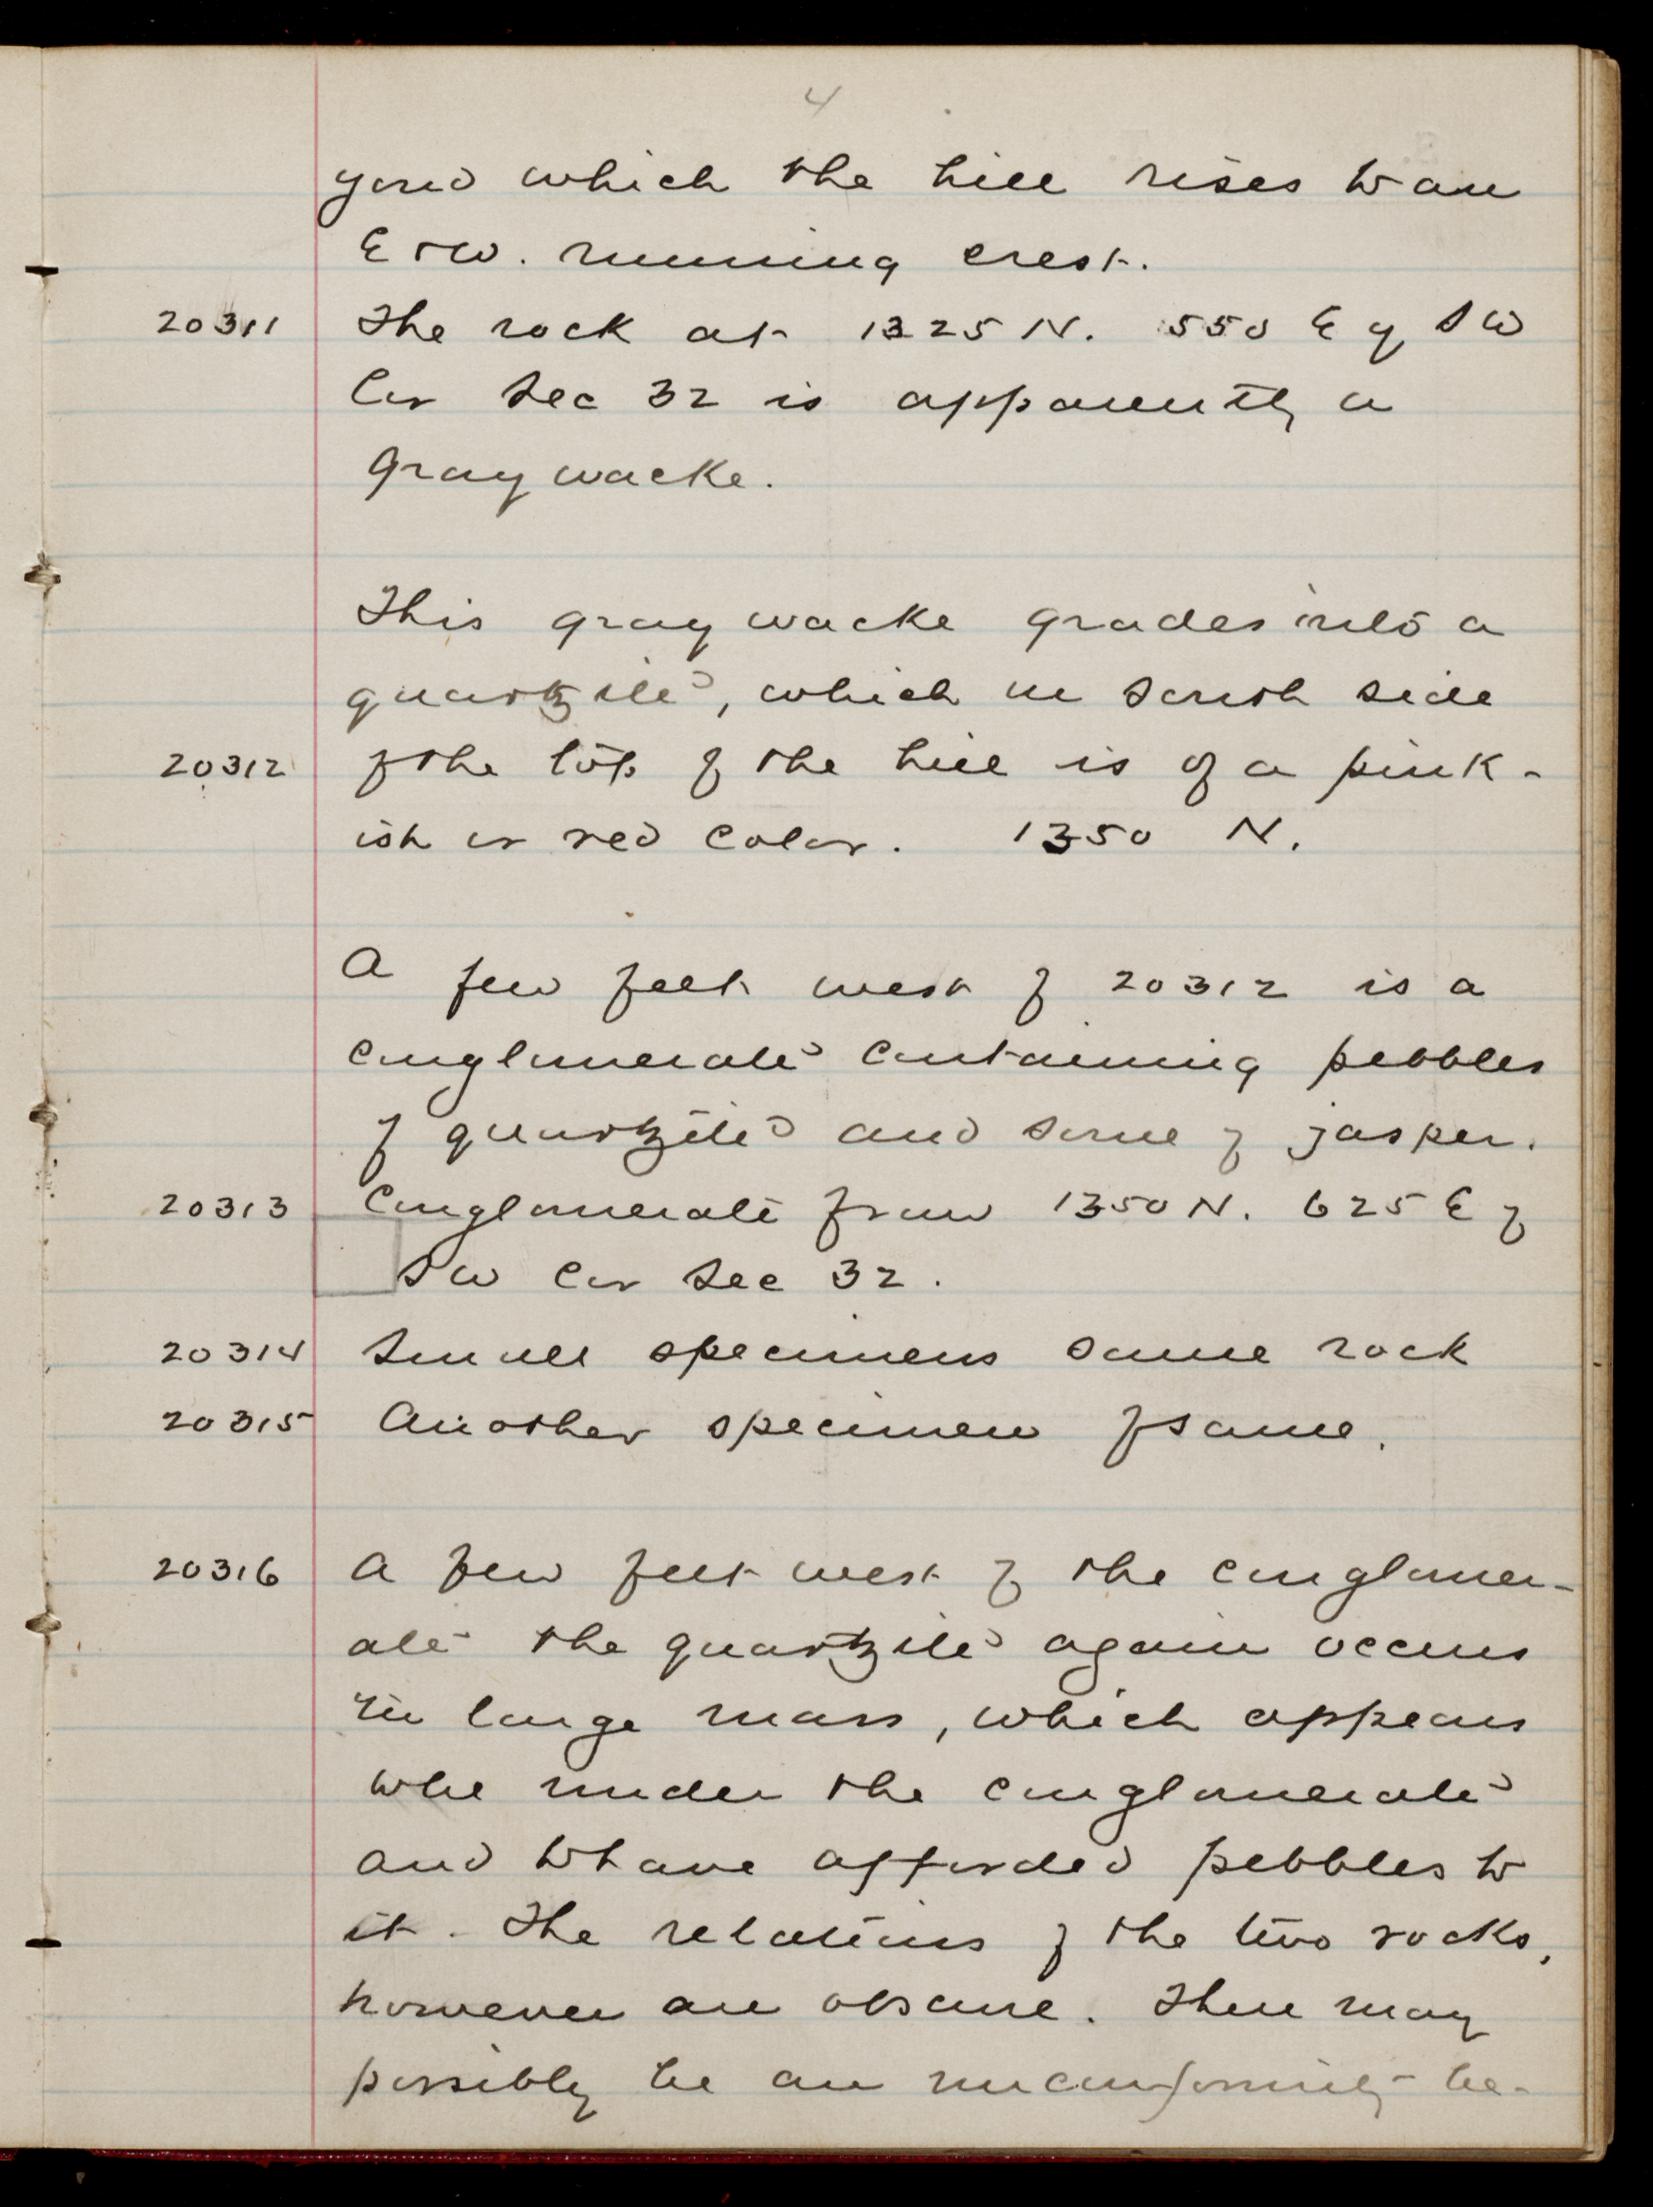 4
yond which the hill rises to an
E + W. running crest.
20311 The rock at 1325 N. 550 E of SW
Cor Sec 32 is apparently a
graywacke.
This graywacke grades into a
quartzite, which on south side
20312 of the top of the hill is of a pink-
ish or red color. 1350 N.
A few feet west of 20312 is a
conglomerate containing pebbles
of quartzite and some of jasper.
20313 Conglomerate from 1350 N. 625 E of
SW Cor Sec 32.
20314 Small specimens same rock
20315 Another specimen of same.
20316 A few feet west of the conglomer-
ate the quartzite again occurs
in large mass, which appears
to lie under the conglomerate
and to have afforded pebbles to
it. The relations of the two rocks,
however are obscure. There may
possibly be an unconformity be-